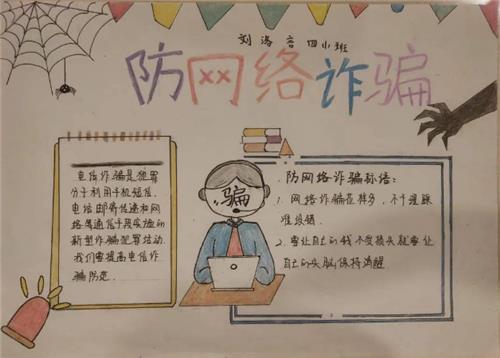 刘洛言 四小班
防网络诈骗
电信诈骗是犯罪
分子利用手机短信、
电话邮寄传递和网
络等通信手段实施的
新型诈骗犯罪活动。
我们要提高电信诈
骗防范
骗
防网络诈骗标语:
1. 网络诈骗花样多，不
2. 要让自己的钱不受损失就要让
自己的头脑保持清醒